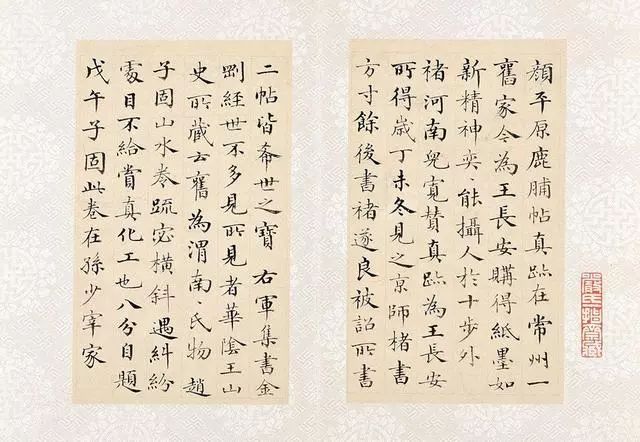 顏平原鹿脯帖真跡在常州一
舊家今為王長安購得紙墨如
新精神奕〻能攝人於十步外
褚河南兒寬贊真跡為王長安
所得歲丁未冬見之京師楮書
方寸餘後書褚遂良被詔所書
二帖皆希世之寶右軍集書金
剛經世不多見所見者華陰王山
史所藏云舊為渭南〻氏物趙
子固山水卷疏宕橫斜遇糾紛
處目不給賞真化工也八分自題
戊午子固此卷在孫少宰家